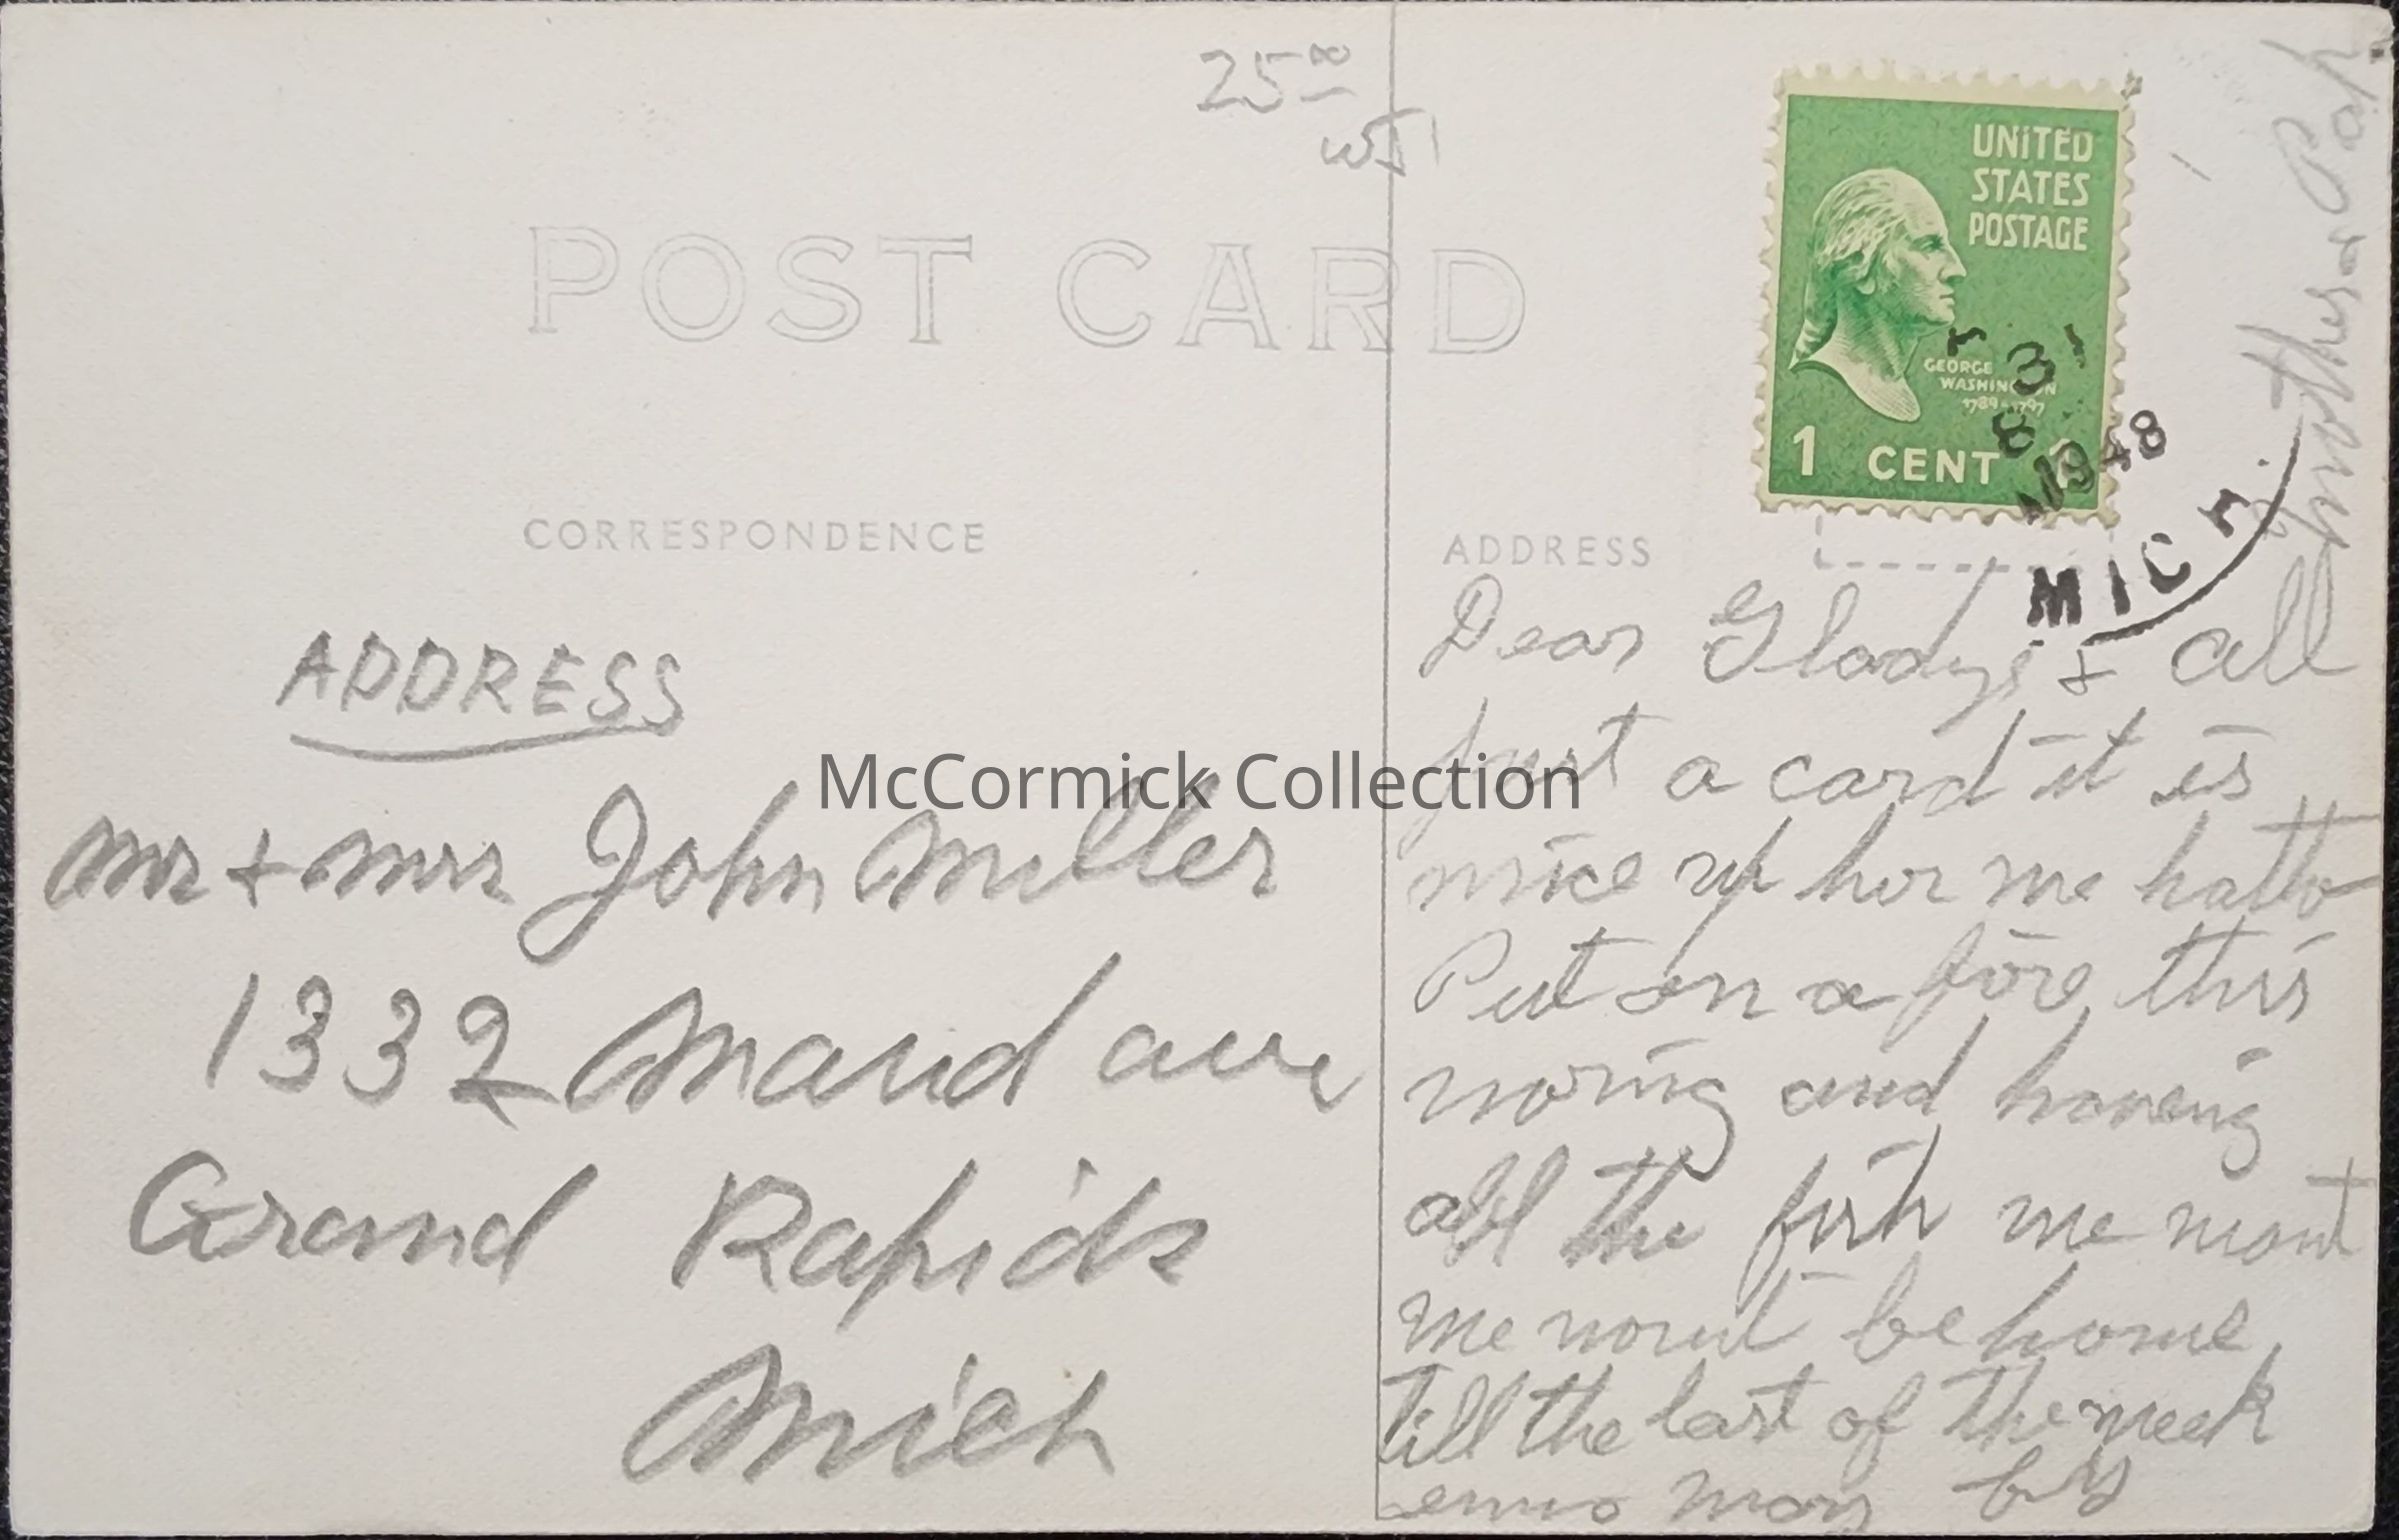 25 00
POST CARD
UNITED
STATES
POSTAGE
GEORGE
WASHINGTON
1789-1797
1 CENT
31
8
1948
MICH.
CORRESPONDENCE
ADDRESS
ADDRESS
Mr + Mrs John Miller
1332 Maud ave
Grand Rapids
Mich
Dear Gladys + all
Just a card it is
nice up her we hatto
Put on a fire this
moring and haveing
all the fish we want
we wont be home
till the last of the week
may by
Mother + Pa
McCormick Collection